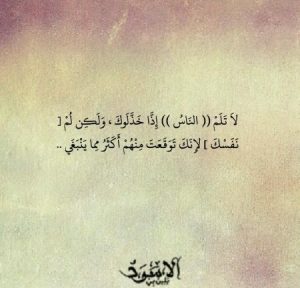 لاَ تَلُمْ (( النَاسُ )) إِذَّا خَذَّلُوكَ ، وَلَكِن لُمْ [
نَفَسُكَ ] لِإنَكَ تَوَقَعَتَ مِنْهُمْ أَكَثَرُ مِما يَنْبَغَي ..
الاسْوَدْ